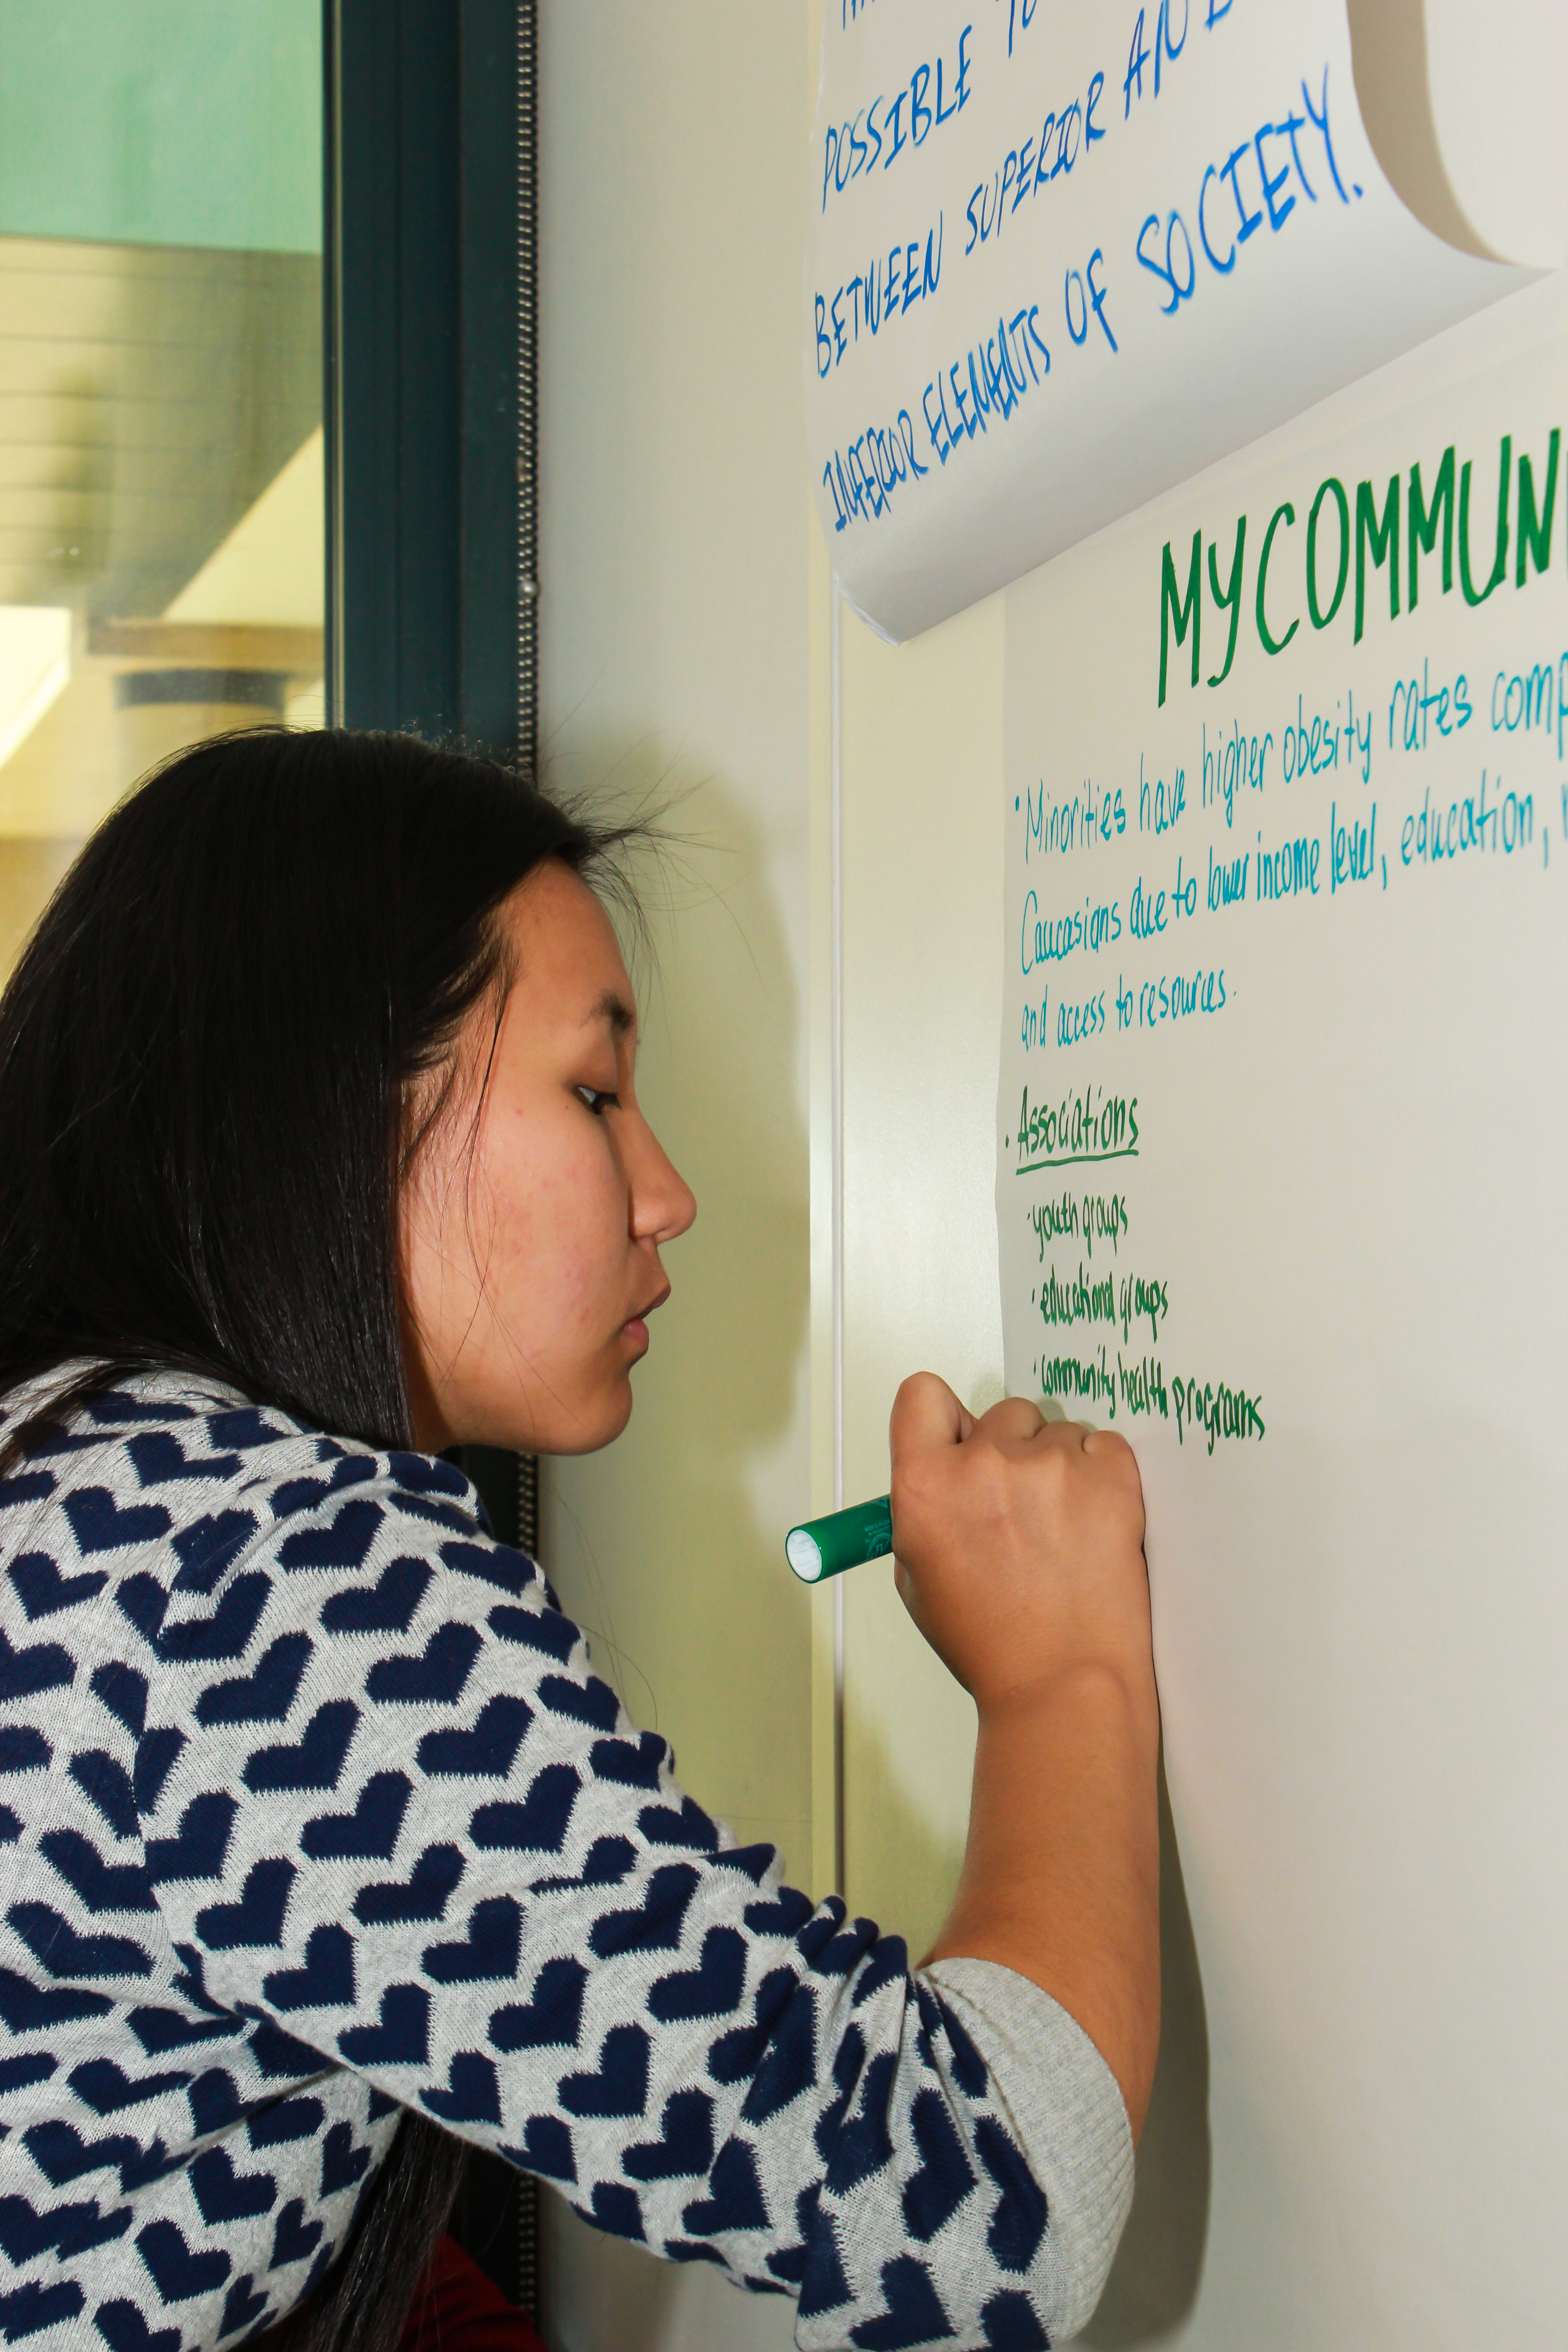 POSSIBLE TO
BETWEEN SUPERIOR AND
INFERIOR ELEMENTS OF SOCIETY.
MY COMMUN
· Minorities have higher obesity rates comp
Caucasians due to lower income level, education,
and access to resources.
· Associations
· youth groups
· educational groups
· community health programs